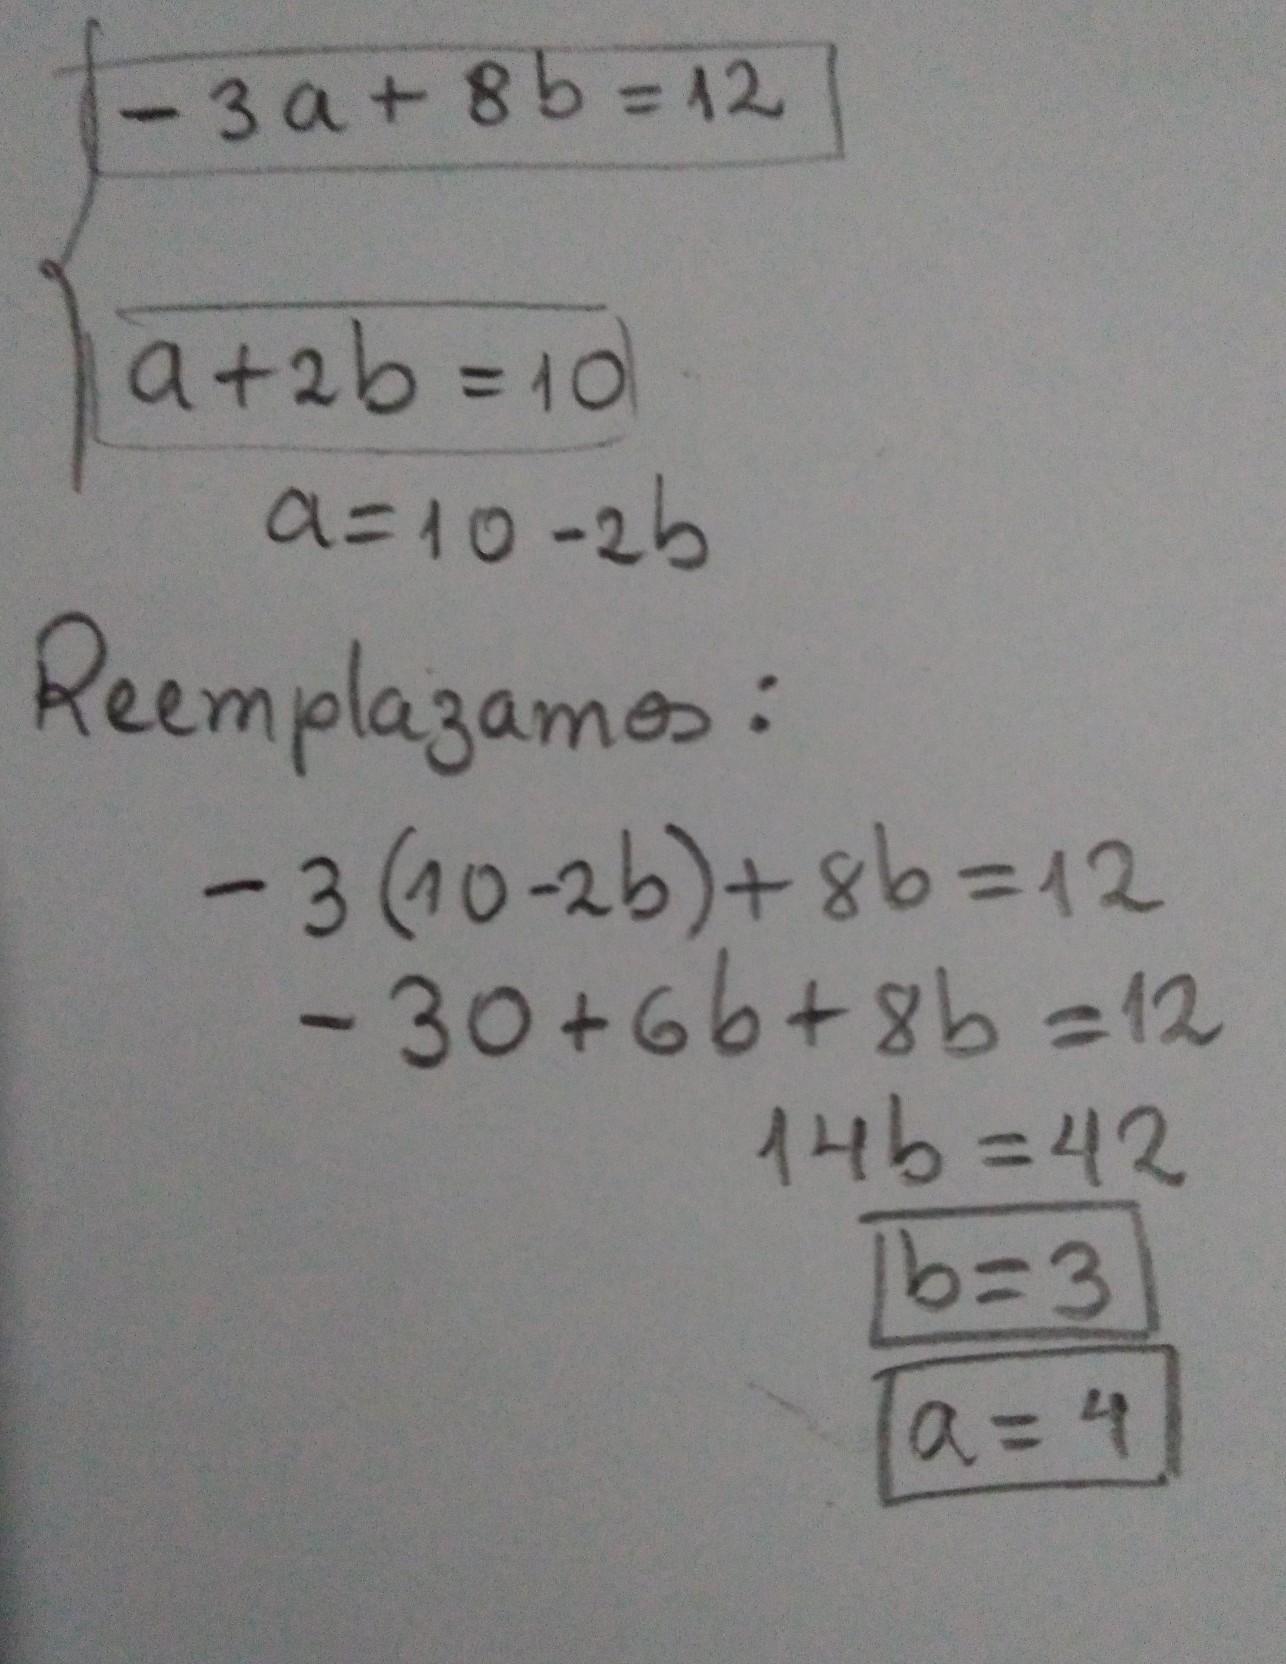 - 3a + 8b = 12
a + 2b = 10
a = 10 - 2b
Reemplazamos:
- 3 (10 - 2b) + 8b = 12
- 30 + 6b + 8b = 12
14b = 42
b = 3
a = 4